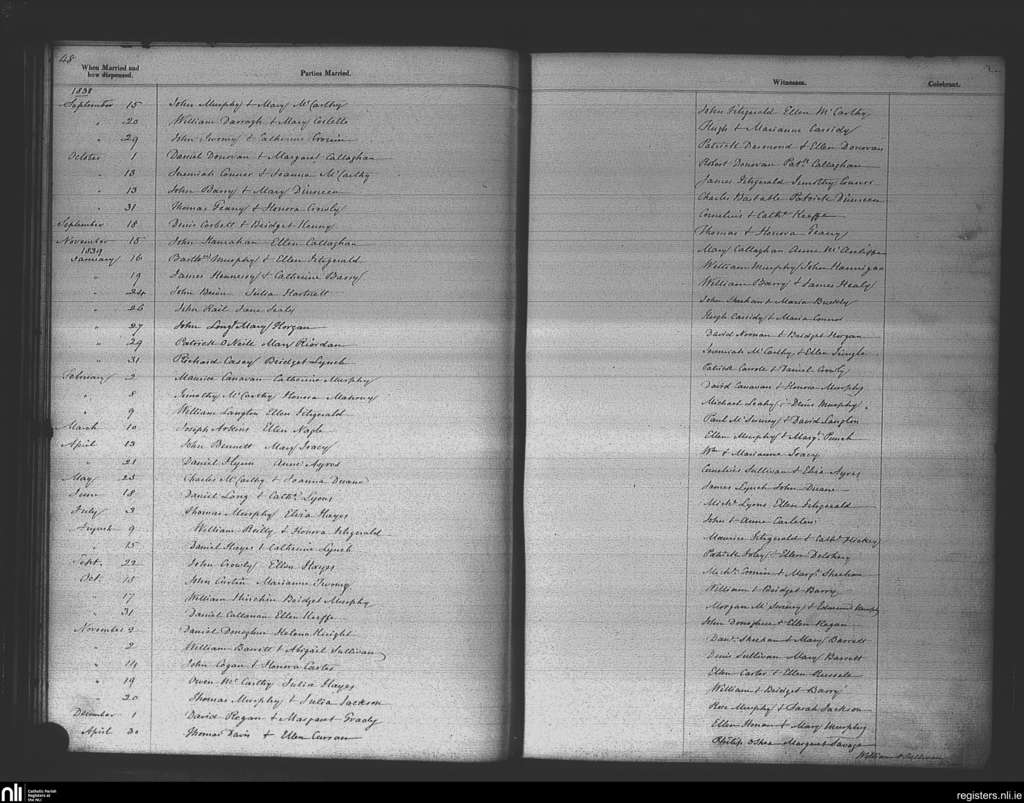 48
When Married and how dispensed.
Parties Married.
Witnesses.
Celebrant.
1838
September 15 John Murphy & Mary McCarthy John Fitzgerald Ellen McCarthy
" 20 William Darragh & Mary Costello Hugh & Marianne Cassidy
" 29 John Twomy & Catherine Cronin Patrick Desmond & Ellen Donovan
October 1 Daniel Donovan & Margaret Callaghan Robert Donovan Patk Callaghan
" 13 Jeremiah Connor & Joanna McCarthy James Fitzgerald Timothy Connor
" 13 John Barry & Mary Dinneen Charles Bastable Patrick Dinneen
" 31 Thomas Geany & Honora Crowly Cornelius & Cathe Keeffe
September 18 Denis Corbett & Bridget Kenny Thomas & Honora Geany
November 15 John Hanrahan & Ellen Callaghan Mary Callaghan Anne McAuliffe
1839
January 16 Bartw Murphy & Ellen Fitzgerald William Murphy John Hannigan
" 19 James Hennessy & Catherine Barry William Barry & James Healy
" 24 John Julia Hartnett John Sheehan & Maria Buckly
" 26 John Jane Sealy Hugh Cassidy & Maria Connor
" 27 John Long Mary Horgan David Noonan & Bridget Horgan
" 29 Patrick O'Neill Mary Riordan Jeremiah McCarthy & Ellen
" 31 Richard Casey Bridget Lynch Patrick Carroll & Daniel Crowly
February 2 Maurice Canavan Catherine Murphy David Canavan & Honora Murphy
" 8 Timothy McCarthy Honora Mahony Michael Leahy & Denis Murphy
" 9 William Langton Ellen Fitzgerald Paul McSwiney & David Langton
March 10 Joseph Ellen Nagle Ellen Murphy & Margt Punch
April 13 John Bennett Mary Tracy Wm & Marianne Tracy
" 21 Daniel Flynn Anne Ayres Cornelius Sullivan & Eliza Ayres
May 25 Charles McCarthy & Joanna Duane James Lynch John Duane
June 18 Daniel Long & Cathe Lyons Michl Lyons Ellen Fitzgerald
July 3 Thomas Murphy Eliza Hayes John & Anne Carleton
August 9 William Reilly & Honora Fitzgerald Maurice Fitzgerald & Cathe Hickey
" 15 Daniel Hayes & Catherine Lynch Patrick Foley & Ellen
Sept. 22 John Crowly Ellen Hayes Michl Cronin & Margt Sheehan
Oct. 15 John Curtin Marianne Twomy William & Bridget Barry
" 17 William Bridget Murphy Morgan McSwiney & Edmund Murphy
" 31 Daniel Callanan Ellen Keeffe John Donoghue & Ellen Hogan
November 2 Daniel Donoghue Helena Knight Danl Sheehan & Mary Barrett
" 2 William Barrett & Abigail Sullivan Denis Sullivan Mary Barrett
" 14 John Cogan & Honora Carter Ellen Carter & Ellen Russell
" 19 Owen McCarthy Julia Hayes William & Bridget Barry
" 20 Thomas Murphy & Julia Jackson Rose Murphy & Sarah Jackson
December 1 David Regan & Margaret Grady Ellen Honan & Mary Murphy
April 30 Thomas Davis & Ellen Curran Philip O'Shea Margaret Savage
William O'Sullivan
nli Catholic Parish Registers at the NLI
registers.nli.ie